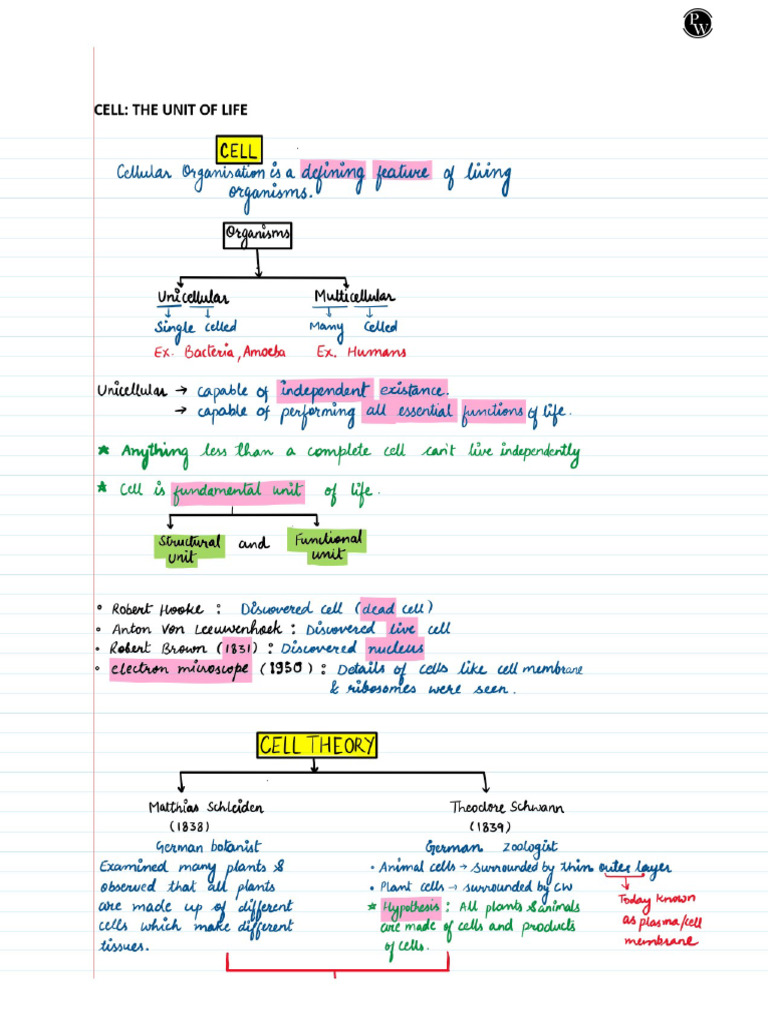 PW
CELL: THE UNIT OF LIFE
CELL
Cellular Organisation is a defining feature of living
organisms.
Organisms
Unicellular Multicellular
Single celled Many Celled
Ex. Bacteria, Amoeba Ex. Humans
Unicellular → capable of independent existance.
→ capable of performing all essential functions of life.
* Anything less than a complete cell can't live independently
* Cell is fundamental unit of life.
Structural unit and Functional unit
• Robert Hooke : Discovered cell (dead cell)
• Anton Von Leeuwenhoek : Discovered live cell
• Robert Brown (1831) : Discovered nucleus
• electron microscope (1950) : Details of cells like cell membrane
& ribosomes were seen.
CELL THEORY
Matthias Schleiden
(1838)
German botanist
Examined many plants &
observed that all plants
are made up of different
cells which make different
tissues.
Theodore Schwann
(1839)
German zoologist
• Animal cells → surrounded by thin outer layer
• Plant cells → surrounded by CW
* Hypothesis : All plants & animals
are made of cells and products
of cells.
Today known
as plasma/cell
membrane